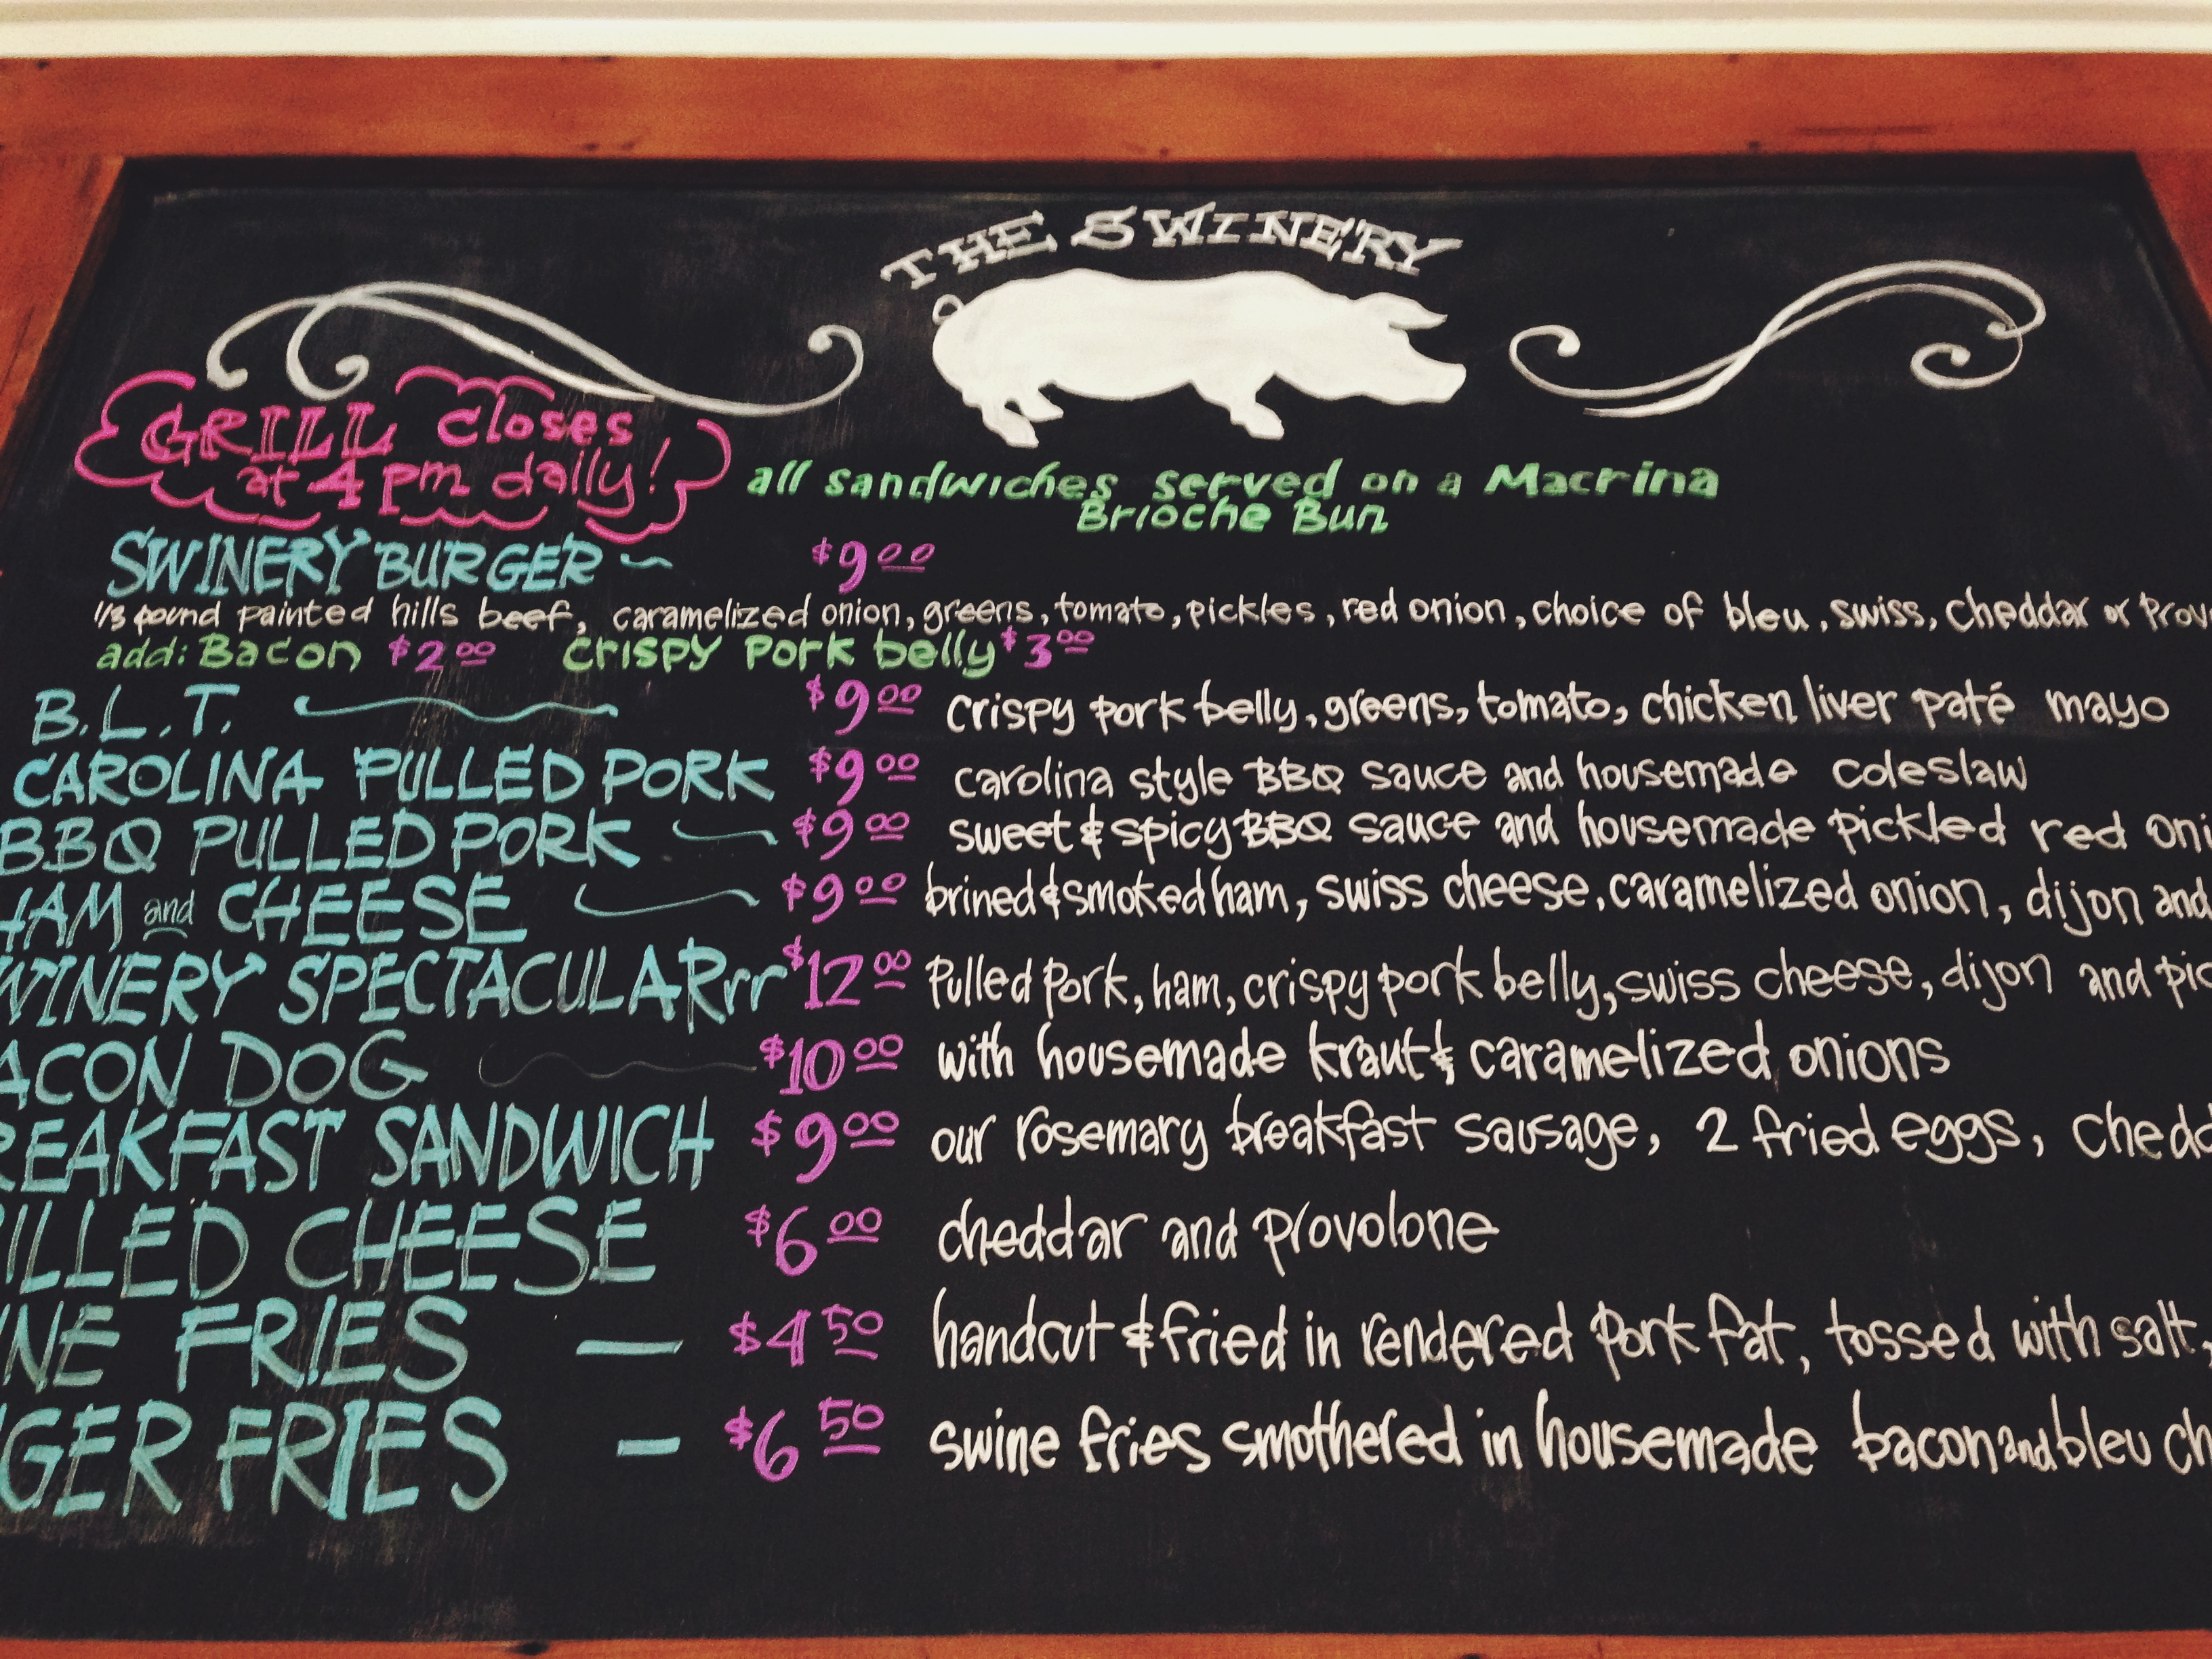 THE SWINERY
GRILL closes
at 4 pm daily!
all sandwiches served on a Macrina
Brioche Bun
SWINERY BURGER ~ $9 00
1/3 pound painted hills beef, caramelized onion, greens, tomato, pickles, red onion, choice of bleu, swiss, cheddar or Prov
add: Bacon $2 00 crispy pork belly $3 00
B.L.T. $9 00 crispy pork belly, greens, tomato, chicken liver paté mayo
CAROLINA PULLED PORK $9 00 carolina style BBQ sauce and housemade coleslaw
BBQ PULLED PORK $9 00 sweet & spicy BBQ sauce and housemade pickled red oni
HAM and CHEESE $9 00 brined & smoked ham, swiss cheese, caramelized onion, dijon and
WINERY SPECTACULARrr $12 00 Pulled pork, ham, crispy pork belly, swiss cheese, dijon and pic
ACON DOG $10 00 with housemade kraut & caramelized onions
REAKFAST SANDWICH $9 00 our rosemary breakfast sausage, 2 fried eggs, chedd
ILLED CHEESE $6 00 cheddar and provolone
INE FRIES — $4 50 handcut & fried in rendered pork fat, tossed with salt,
GER FRIES — $6 50 swine fries smothered in housemade bacon and bleu ch